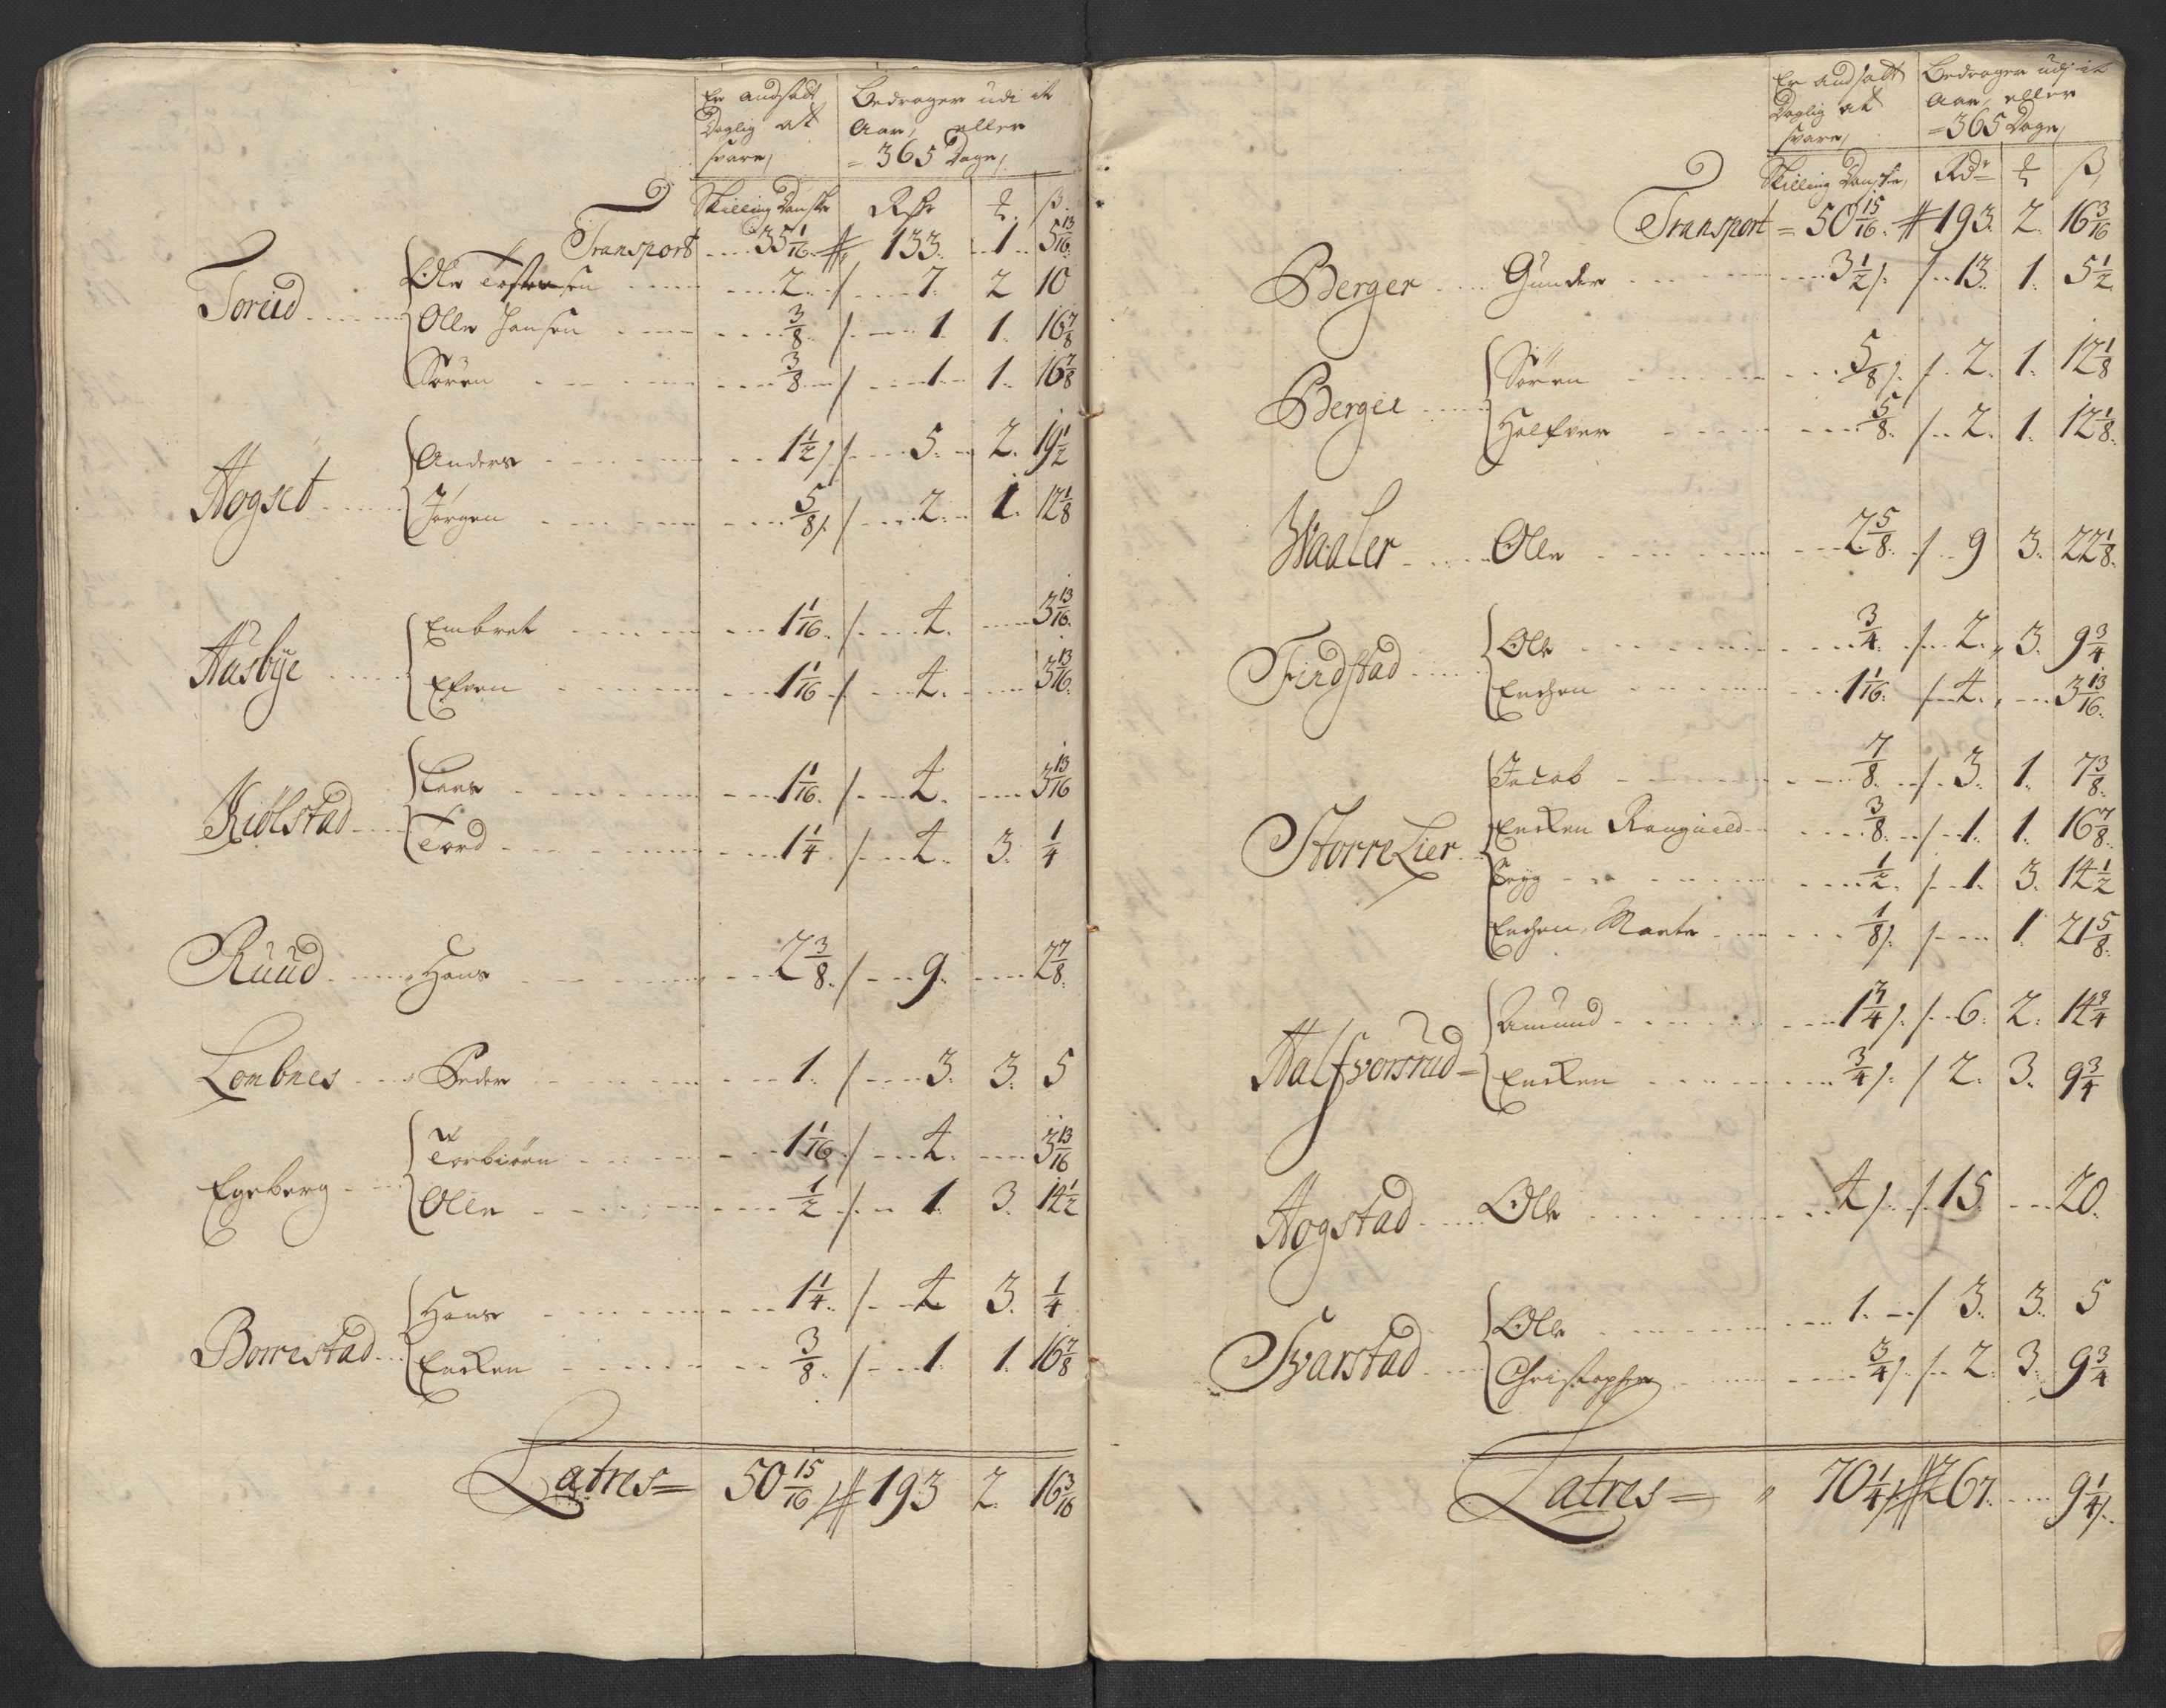 Er andsadt Daglig at svare, Bedrager udi it Aar, eller =365 Dage,
Skilling Danske Rdr ƶ ß.
Transport 35 1/16 133. 1. 5 13/16.
Torud Olle Tostensen 2. 7. 2 10
Olle Hansen 3/8 1 1. 16 7/8
Søren 3/8 1 1. 16 7/8
Hogset Anders 1 1/2 5. 2. 19 1/2
Jørgen 5/8 2. 1. 12 1/8
Husbÿe Embret 1 1/16. 4. 3 13/16.
Efven 1 1/16 4. 3 13/16.
Kiölstad Lars 1 1/16. 4. 3 13/16
Tord 1 1/4 4. 3. 1/4
Ruud Hans 2 3/8. 9. 2 7/8.
Lombnes Peder 1. 3. 3. 5
Egeberg Torbiørn 1 1/16 4. 3 13/16
Olle 1/2 1. 3. 14 1/2
Borrestad Hans 1 1/4. 4 3. 1/4
Encken 3/8. 1 1. 16 7/8
Latres = 50 15/16 193 2. 16 3/16
Er andsatt Daglig at svare, Bedrager udj it Aar, eller =365 Dage,
Skilling Danske, Rdr ƶ ß,
Transport = 50 15/16. 193. 2. 16 3/16
Berger Gunder 3 1/2 13. 1. 5 1/2
Bergee Søren 5/8 2. 1. 12 1/8
Halfver 5/8. 2. 1. 12 1/8.
Waaler Olle 2 5/8. 9 3. 22 1/8.
Findstad Ole 3/4. 2. 3. 9 3/4
Enchen 1 1/16. 4. 3 13/16.
StorreLier Jacob 7/8. 3. 1. 7 3/8.
Encken Rangnild 3/8. 1. 1. 16 7/8.
1/2. 1. 3. 14 1/2
Enchen Marte 1/8 1 21 5/8.
Halfvorsrud Amund 1 3/4 6. 2. 14 3/4
Encken 3/4 2. 3. 9 3/4
Hogstad Ole 4 15. 20.
Svarstad Ole 1. 3. 3. 5
Christopher 3/4 2. 3. 9 3/4
Latres = 70 1/4 267. 9 1/4